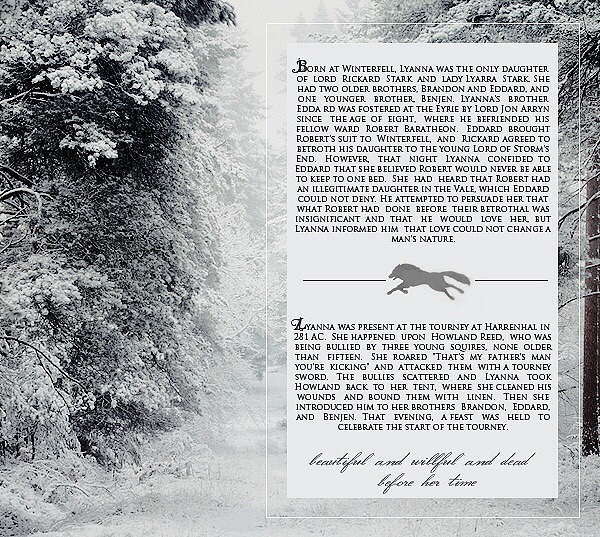 Born at Winterfell, Lyanna was the only daughter
of Lord Rickard Stark and Lady Lyarra Stark. She
had two older brothers, Brandon and Eddard, and
one younger brother, Benjen. Lyanna's brother
Edda rd was fostered at the Eyrie by Lord Jon Arryn
since the age of eight, where he befriended his
fellow ward Robert Baratheon. Eddard brought
Robert's suit to Winterfell, and Rickard agreed to
betroth his daughter to the young Lord of Storm's
End. However, that night Lyanna confided to
Eddard that she believed Robert would never be able
to keep to one bed. She had heard that Robert had
an illegitimate daughter in the Vale, which Eddard
could not deny. He attempted to persuade her that
what Robert had done before their betrothal was
insignificant and that he would love her, but
Lyanna informed him that love could not change a
man's nature.
Lyanna was present at the tourney at Harrenhal in
281 AC. She happened upon Howland Reed, who was
being bullied by three young squires, none older
than fifteen. She roared "That's my father's man
you're kicking" and attacked them with a tourney
sword. The bullies scattered and Lyanna took
Howland back to her tent, where she cleaned his
wounds and bound them with linen. Then she
introduced him to her brothers Brandon, Eddard,
and Benjen. That evening, a feast was held to
celebrate the start of the tourney.
beautiful and willful and dead
before her time